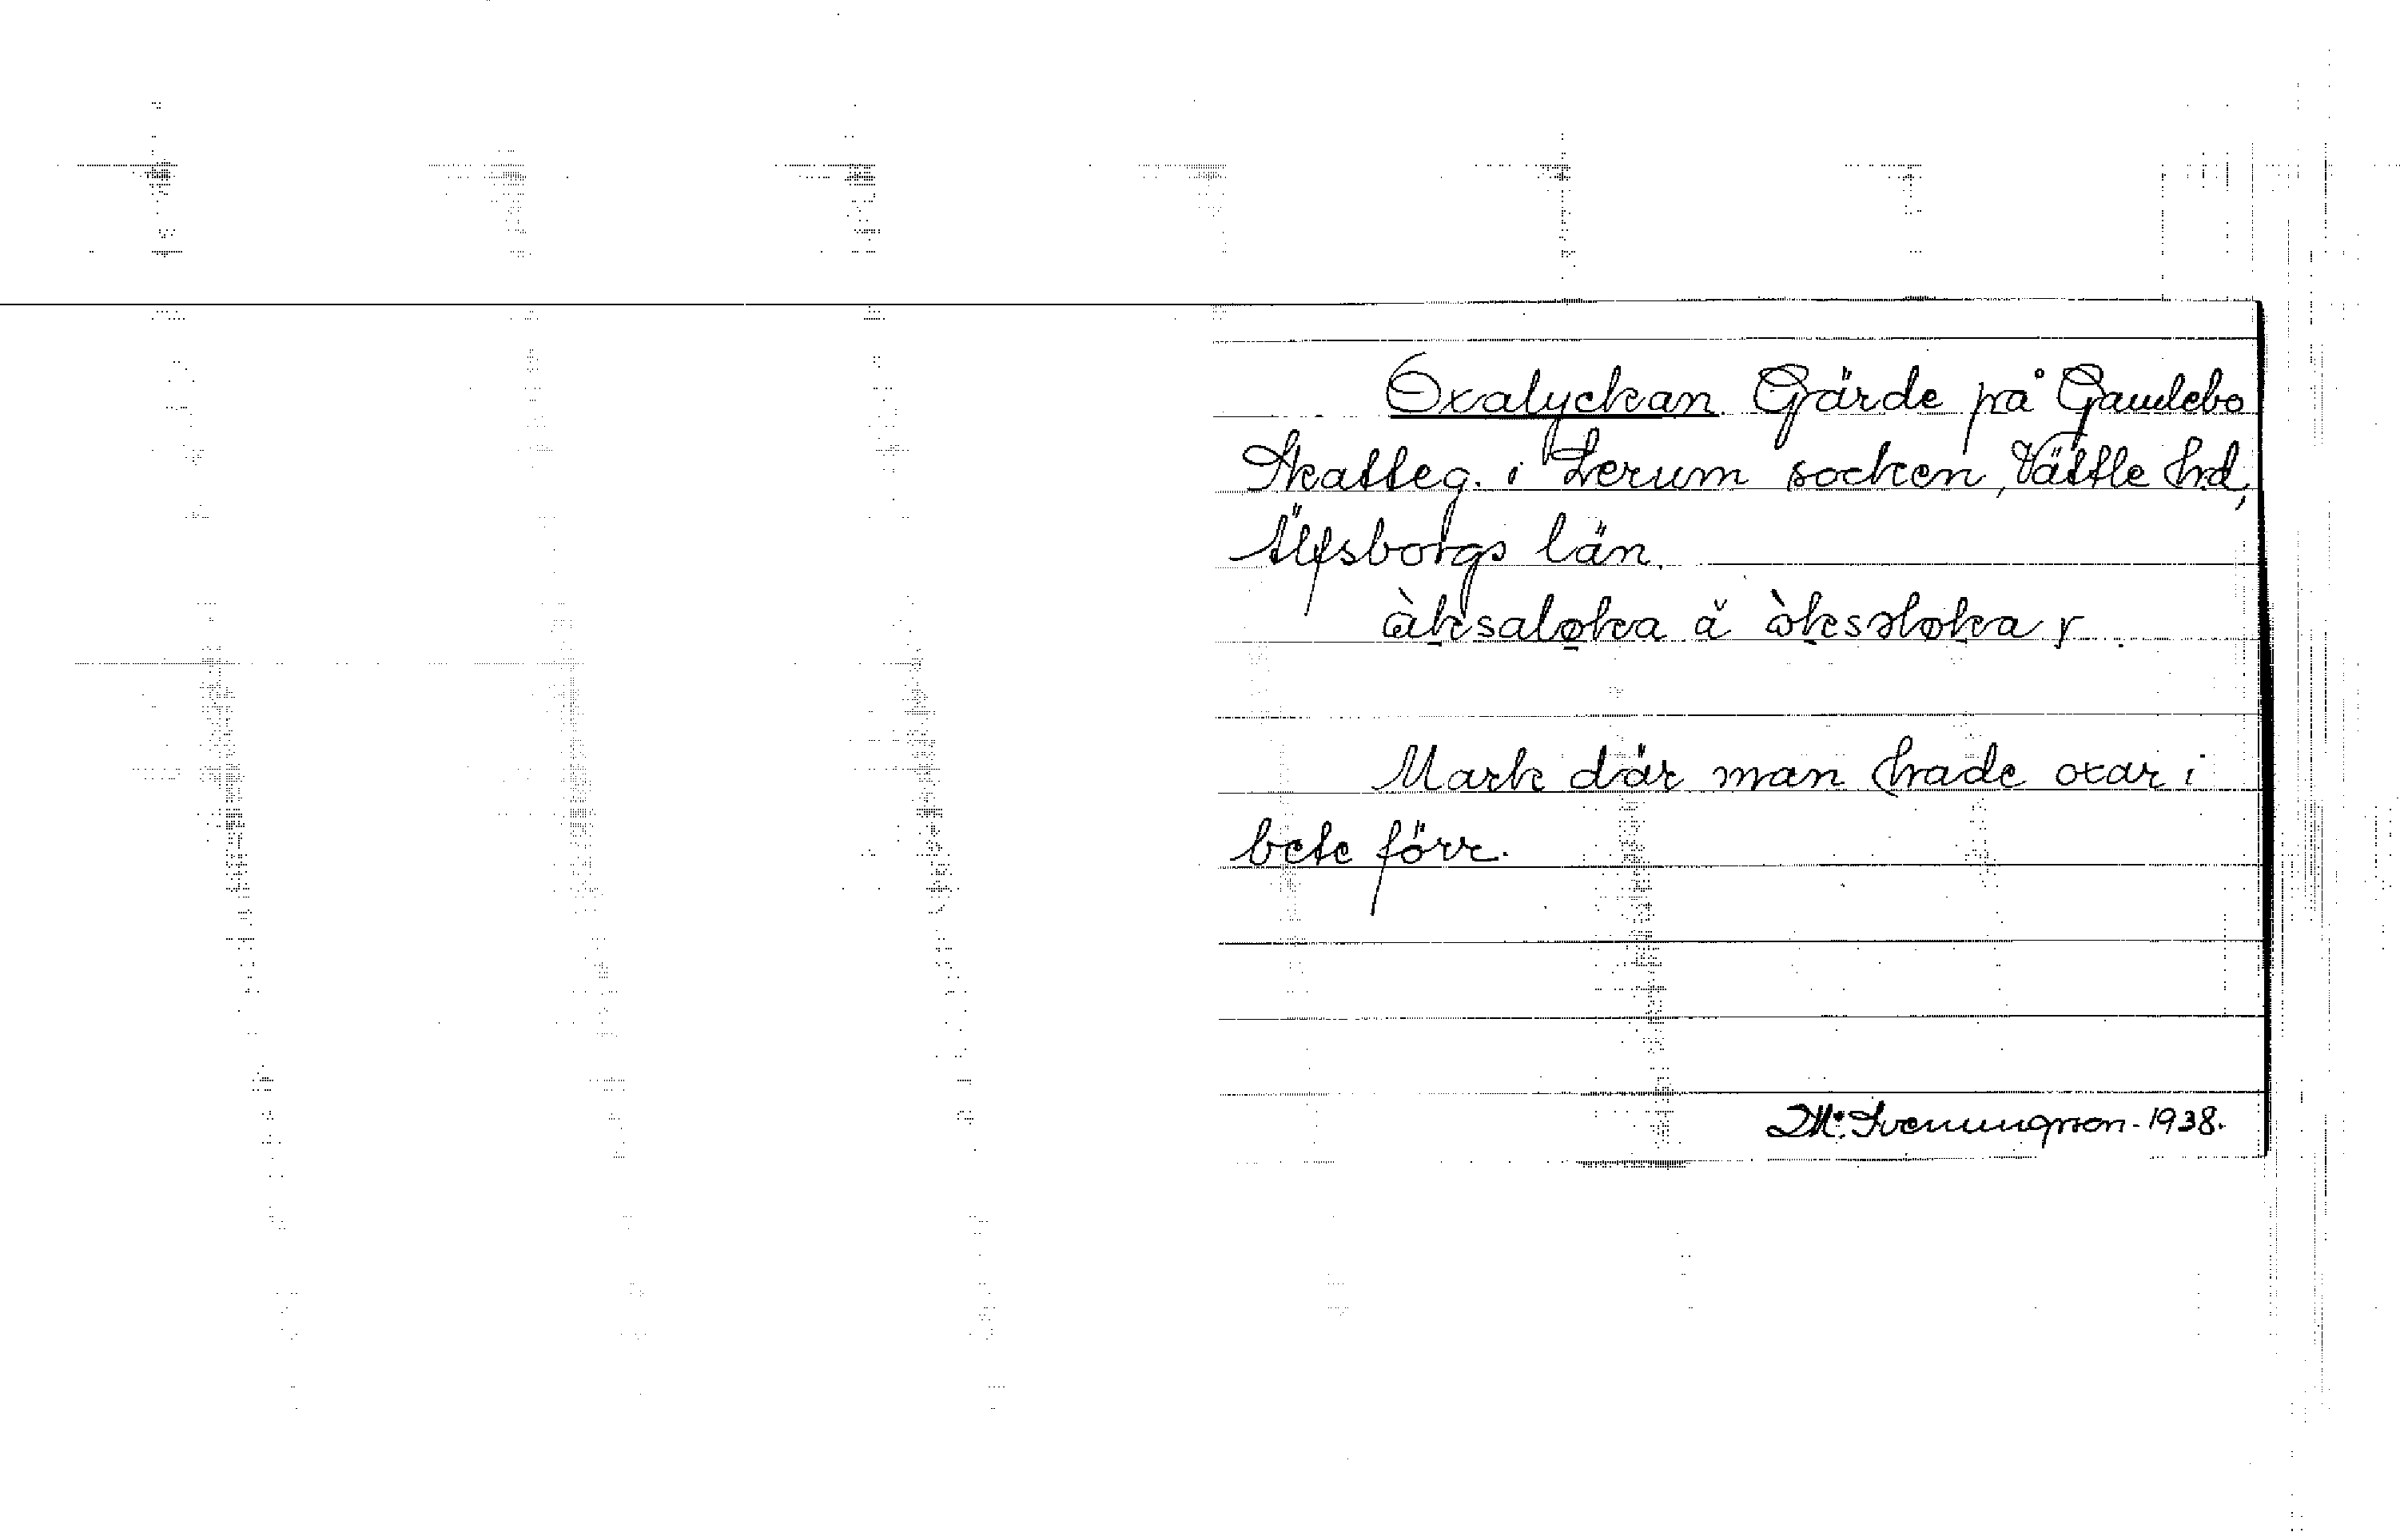 Oxalyckan. Gärde på Gamlebo
Skatteg. i Lerum socken, Vättle hrd,
Älfsborgs län.
àksaløka å òksəløka r
Mark där man hade oxar i
bete förr.
M. Svenungsson - 1938.